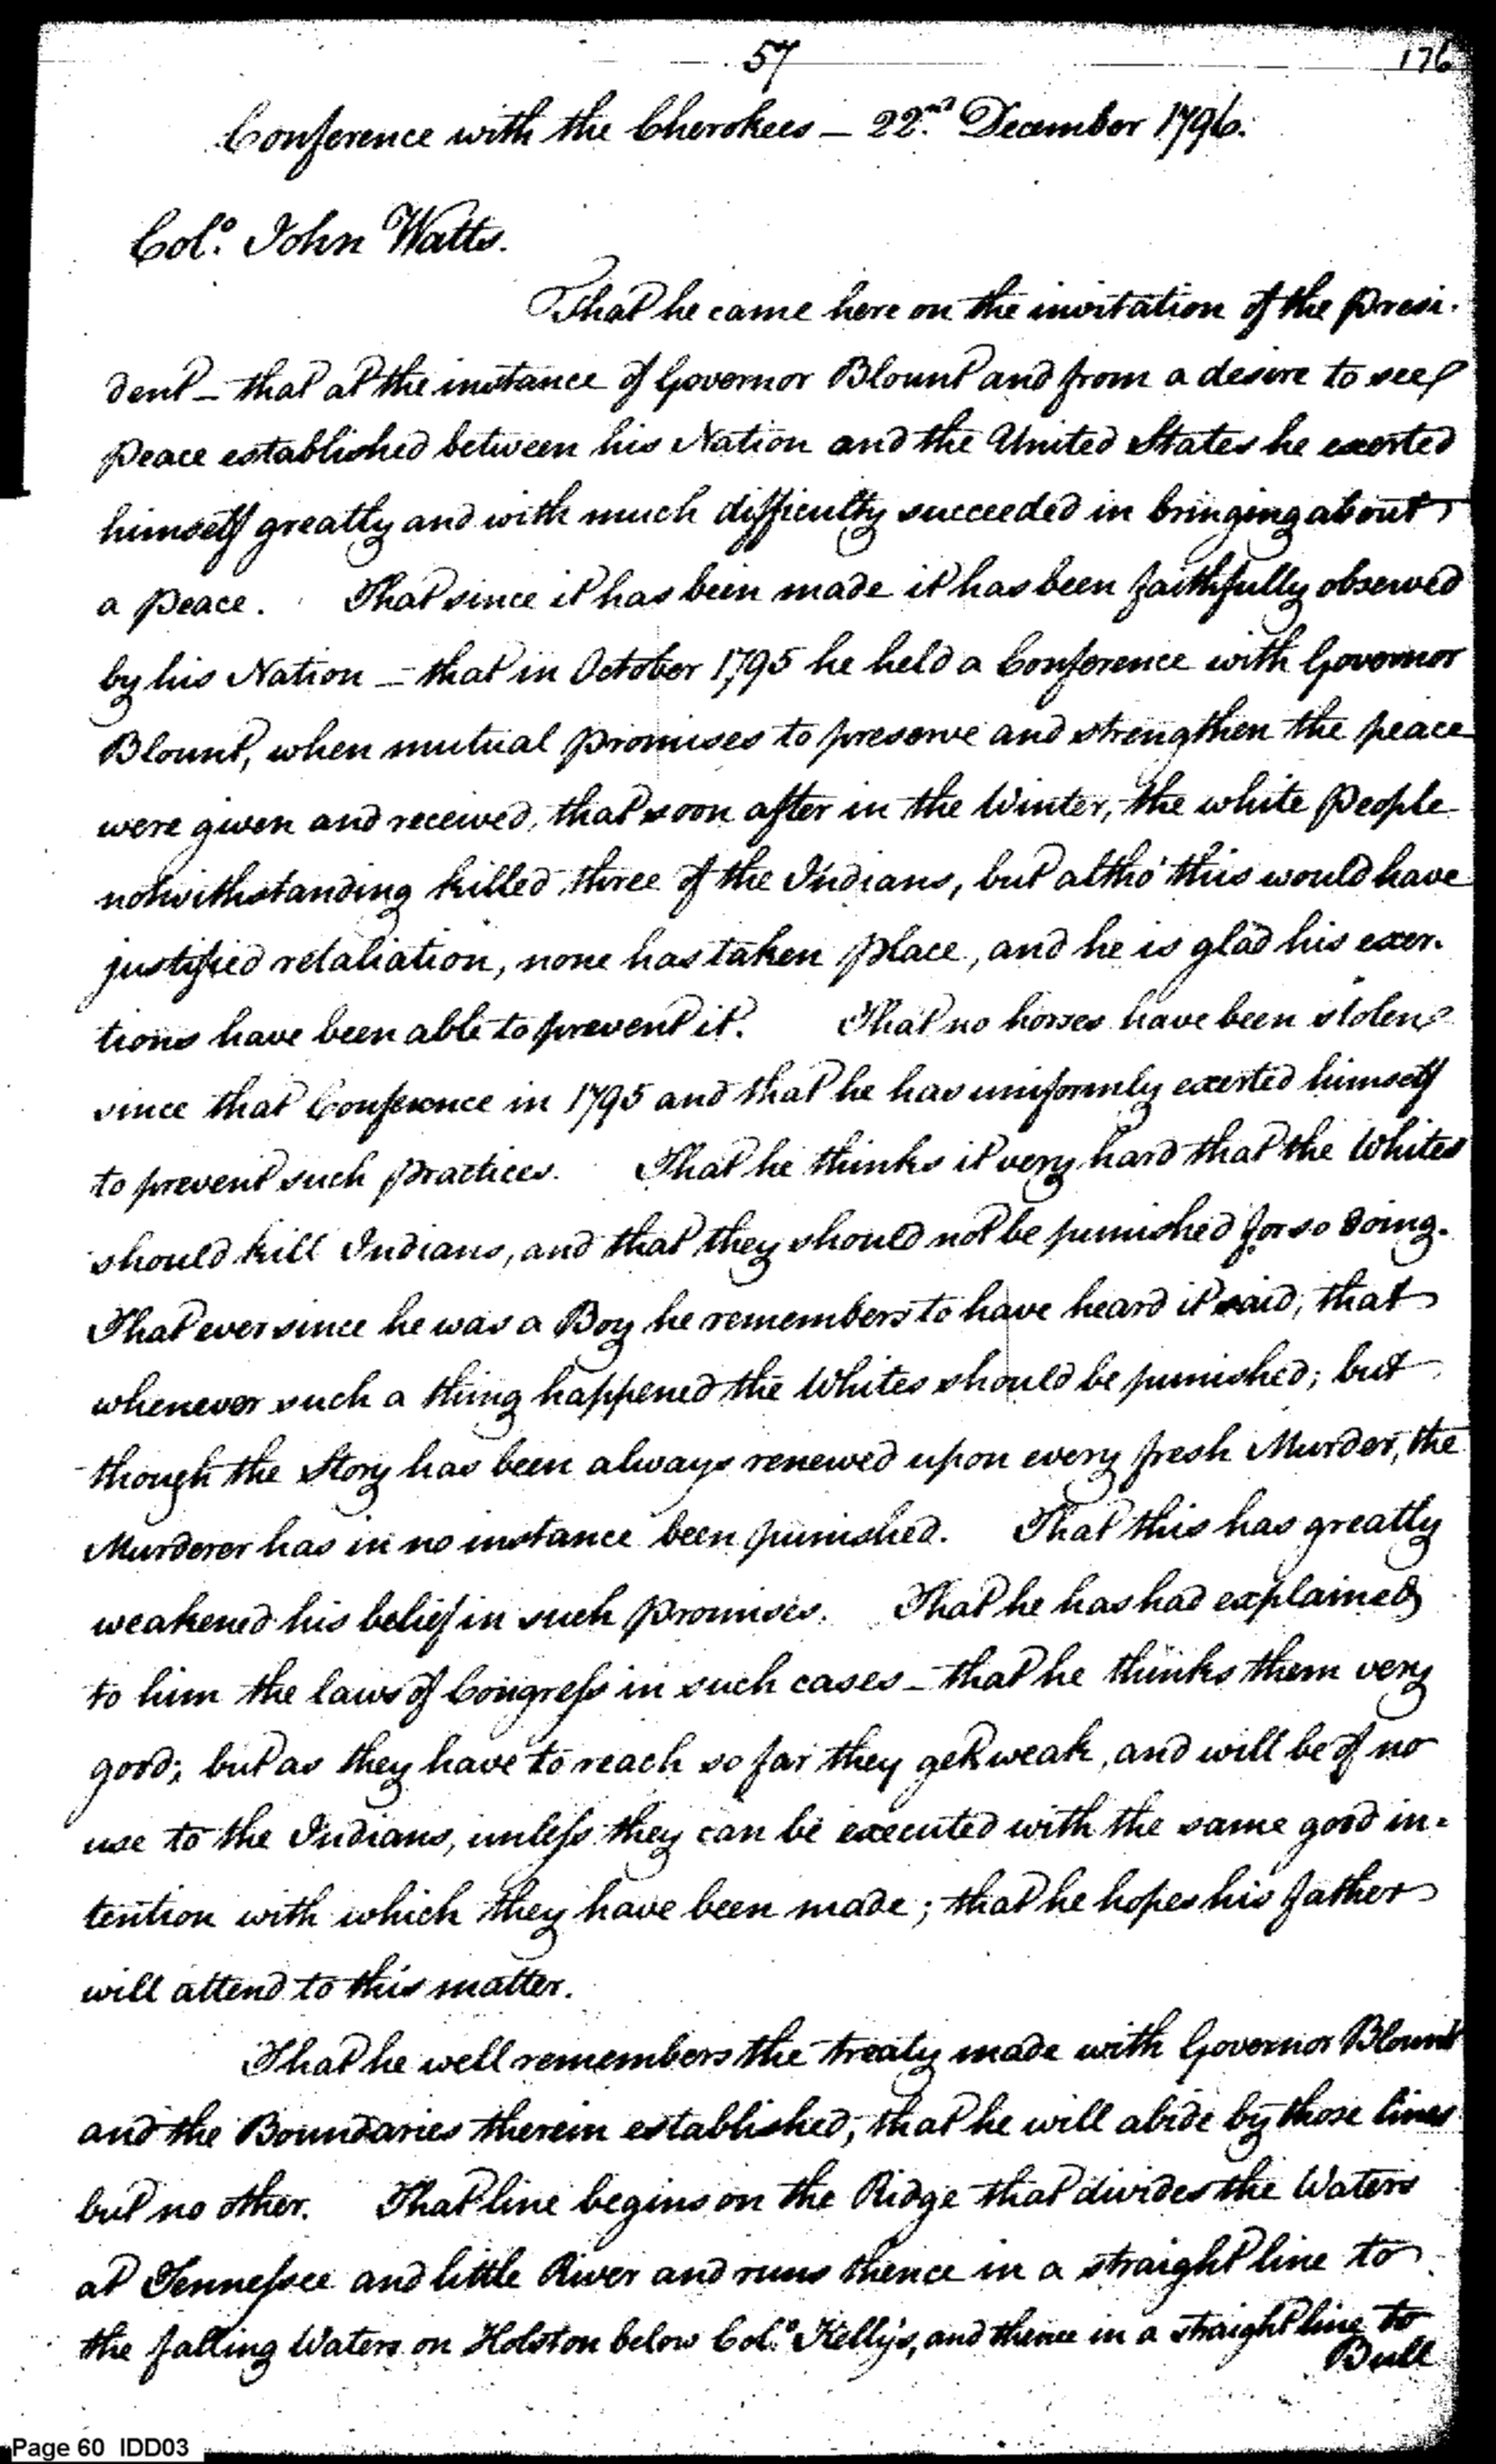 57
176
Conference with the Cherokees – 22.nd December 1796.
Col.o John Watts.
That he came here on the invitation of the Presi-
dent – that at the instance of Governor Blount and from a desire to see
peace established between his Nation and the United States he exerted
himself greatly and with much difficulty succeeded in bringing about
a peace. That since it has been made it has been faithfully observed
by his Nation – that in October 1795 he held a Conference with Governor
Blount, when mutual promises to preserve and strengthen the peace
were given and received, that soon after in the Winter, the white People
notwithstanding killed three of the Indians, but altho' this would have
justified retaliation, none has taken place, and he is glad his exer-
tions have been able to prevent it. That no horses have been stolen
since that Conference in 1795 and that he has uniformly exerted himself
to prevent such practices. That he thinks it very hard that the Whites
should kill Indians, and that they should not be punished for so doing.
That ever since he was a Boy he remembers to have heard it said, that
whenever such a thing happened the Whites should be punished; but
though the Story has been always renewed upon every fresh Murder, the
Murderer has in no instance been punished. That this has greatly
weakened his belief in such promises. That he has had explained
to him the laws of Congress in such cases – that he thinks them very
good; but as they have to reach so far they get weak, and will be of no
use to the Indians, unless they can be executed with the same good in=
tention with which they have been made; that he hopes his father
will attend to this matter.
That he well remembers the treaty made with Governor Blount
and the Boundaries therein established, that he will abide by those lines
but no other. That line begins on the Ridge that divides the Waters
at Tennessee and little River and runs thence in a straight line to
the falling Waters on Holston below Col.o Kelly's, and thence in a straight line to
Bull
Page 60 IDD03